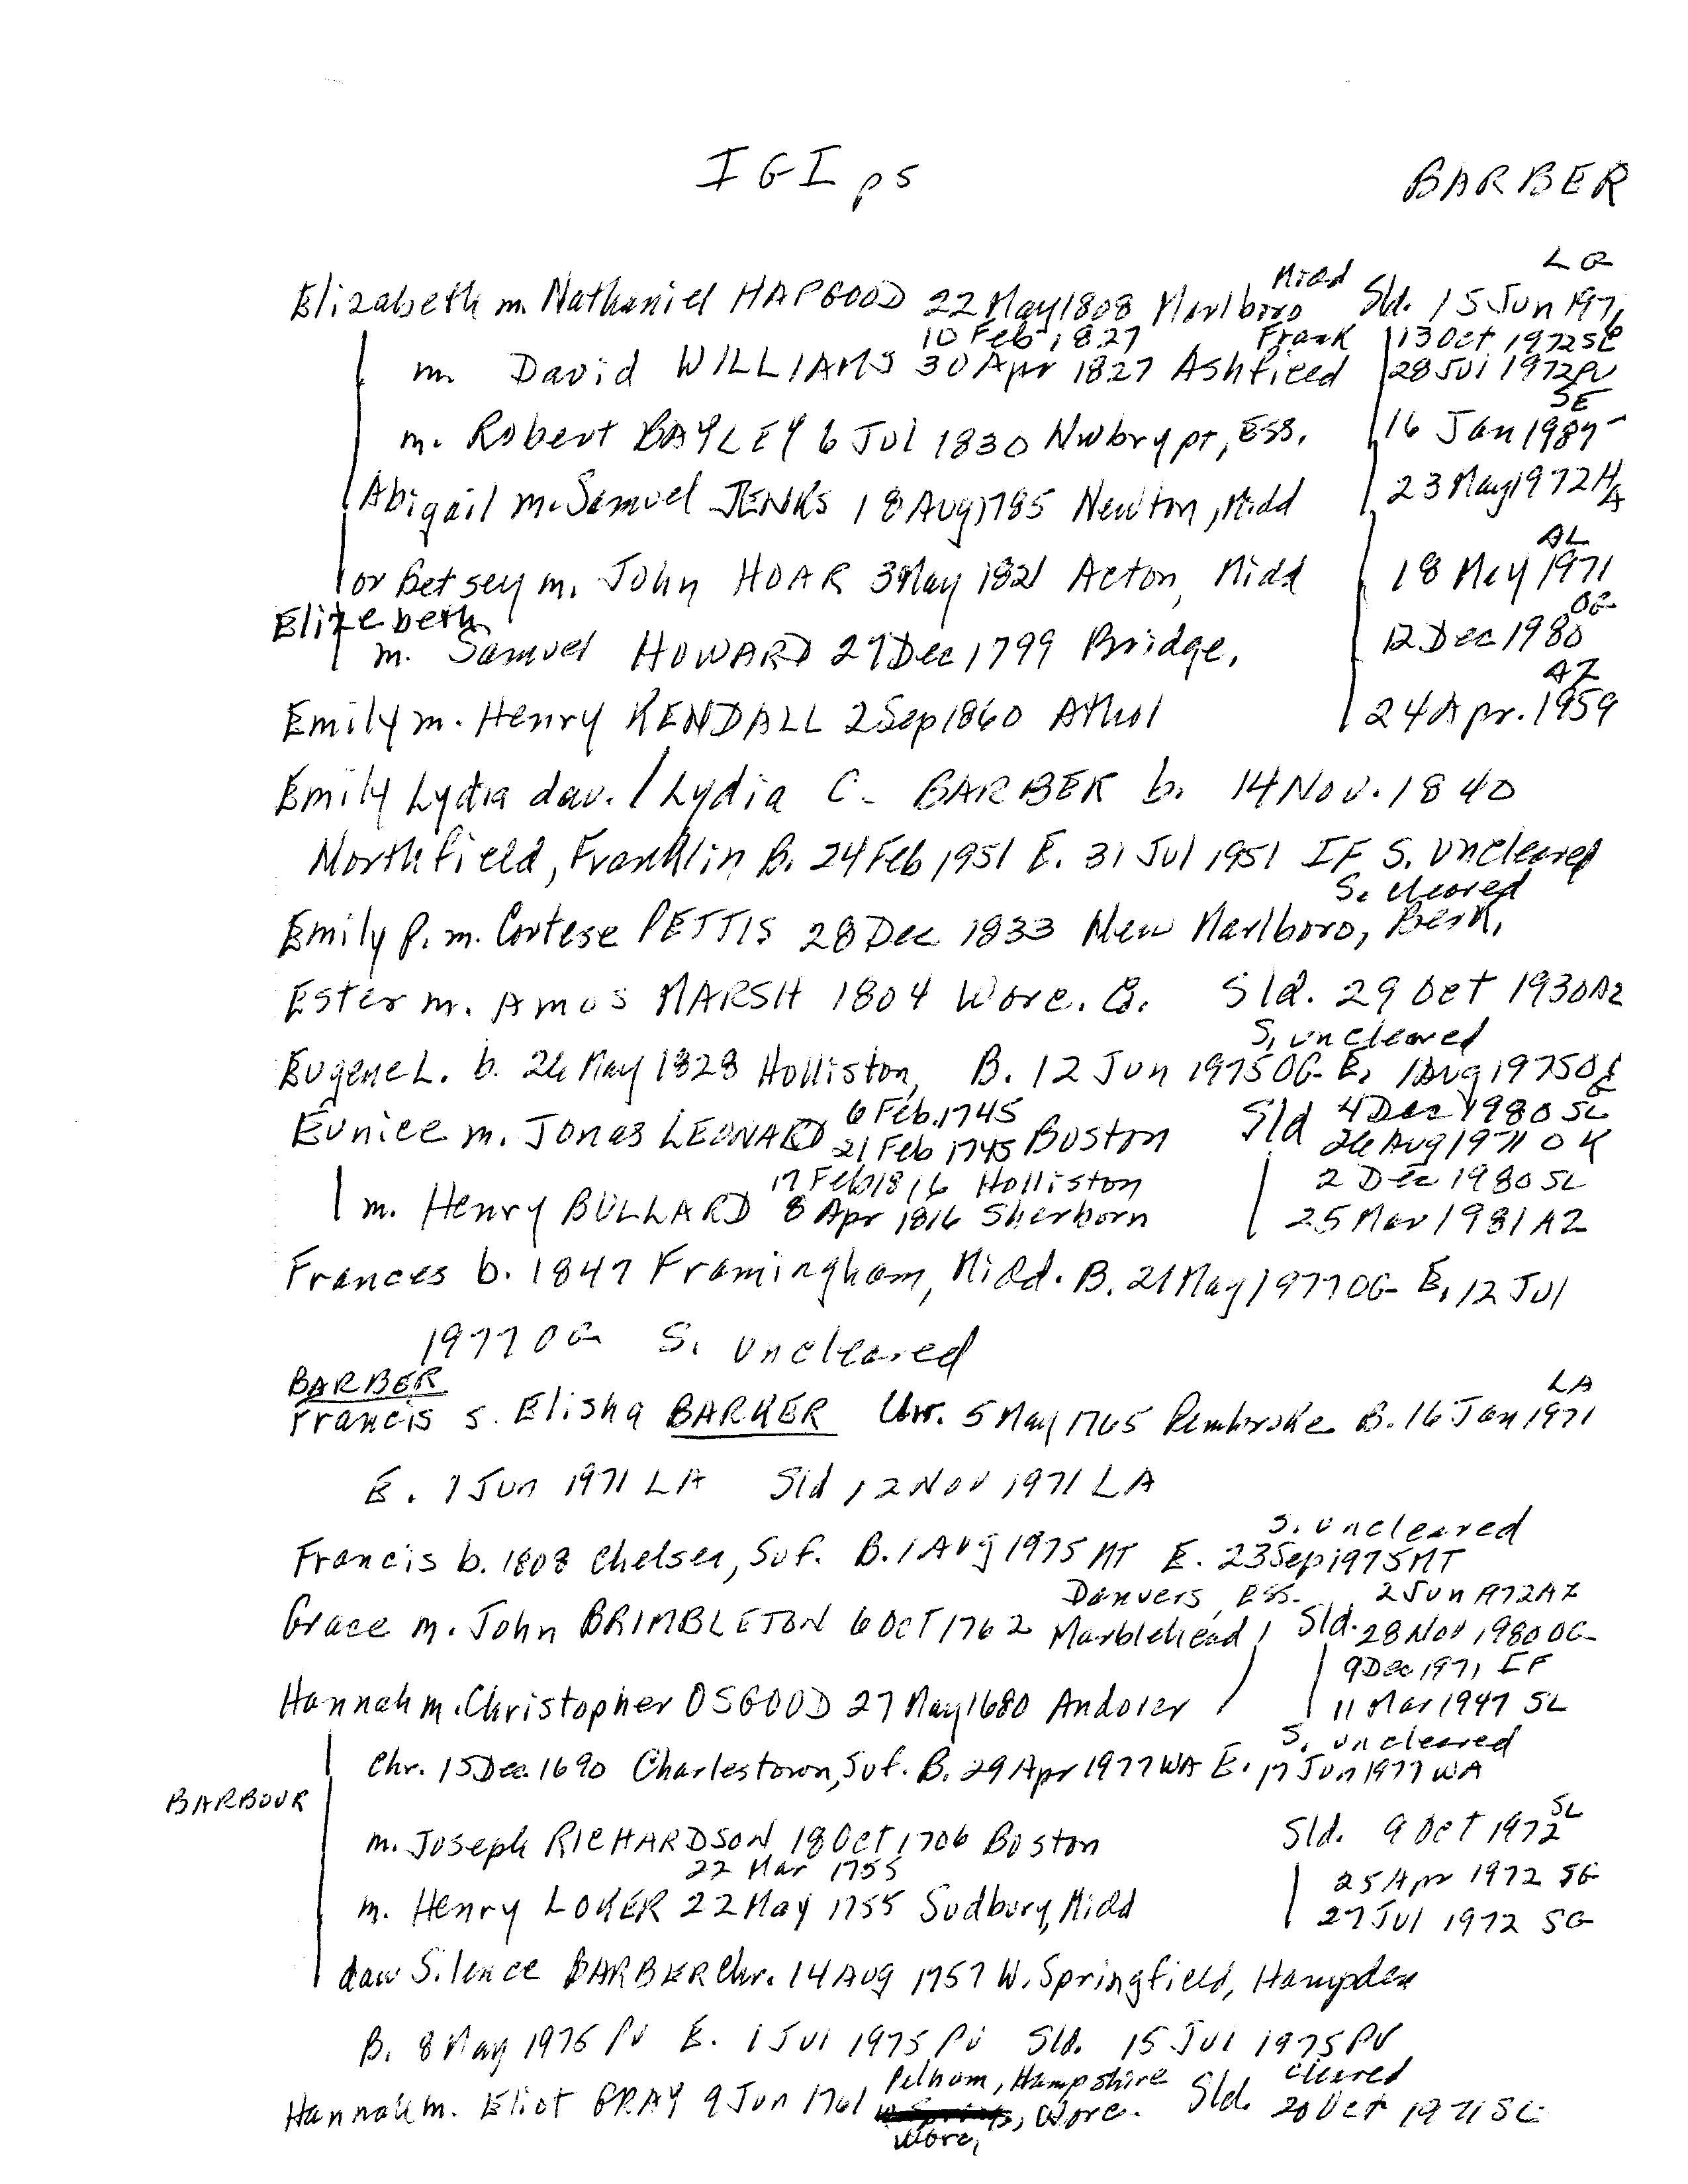 IGI ps BARBER
Midd LG
Elizabeth m. Nathaniel HAPGOOD 22 May 1808 Marlboro Sld. 15 Jun 1976
10 Feb 1827 Frank 13 Oct 1972 SL
m. David WILLIAMS 30 Apr 1827 Ashfield 28 Jul 1972 PV
SE
m. Robert BAYLEY 6 Jul 1830 Nwbrypt, Ess. 16 Jan 1987
Abigail m. Samuel JENKS 18 Aug 1785 Newton, Midd 23 May 1972 HA
AL
or Betsey m. John HOAR 3 May 1821 Acton, Midd 18 May 1971
Elizebeth OG
m. Samuel HOWARD 27 Dec 1799 Bridge. 12 Dec 1980
AZ
Emily m. Henry KENDALL 2 Sep 1860 Athol 24 Apr. 1959
Emily Lydia dau. / Lydia C. BARBER b. 14 Nov. 1840
Northfield, Franklin B. 24 Feb 1951 E. 31 Jul 1951 IF S. uncleared
S. cleared
Emily P. m. Cortese PETTIS 28 Dec 1833 New Marlboro, Berk.
Ester m. Amos MARSH 1804 Worc. Co. Sld. 29 Oct 1930 AZ
S, uncleared
Eugene L. b. 26 May 1828 Holliston, B. 12 Jun 1975 OG E. 1 Aug 1975 OG
6 Feb. 1745 4 Dec 1980 SL
Eunice m. Jonas LEONARD 21 Feb 1745 Boston Sld 26 Aug 1971 OK
17 Feb 1816 Holliston 2 Dec 1980 SL
m. Henry BULLARD 8 Apr 1816 Sherborn 25 Mar 1981 AZ
Frances b. 1847 Framingham, Midd. B. 21 May 1977 OG E. 12 Jul
1977 OG S. uncleared
BARBER LA
Francis s. Elisha BARKER Chr. 5 May 1765 Pembroke B. 16 Jan 1971
E. 1 Jun 1971 LA Sld 12 Nov 1971 LA
S. uncleared
Francis b. 1808 Chelsea, Suf. B. 1 Aug 1975 MT E. 23 Sep 1975 MT
Danvers, Ess. 2 Jun 1972 AZ
Grace m. John BRIMBLETON 6 Oct 1762 Marblehead Sld. 28 Nov 1980 OG
9 Dec 1971 IF
Hannah m. Christopher OSGOOD 27 May 1680 Andover 11 Mar 1947 SL
S. uncleared
Chr. 15 Dec. 1690 Charlestown, Suf. B. 29 Apr 1977 WA E. 17 Jun 1977 WA
BARBOUR
SL
m. Joseph RICHARDSON 18 Oct 1706 Boston Sld. 9 Oct 1972
22 Mar 1755 25 Apr 1972 SG
m. Henry LOKER 22 May 1755 Sudbury, Midd 27 Jul 1972 SG
dau Silence BARBER Chr. 14 Aug 1757 W. Springfield, Hampden
B. 8 May 1975 PV E. 1 Jul 1975 PV Sld. 15 Jul 1975 PV
Pelham, Hampshire cleared
Hannah m. Eliot GRAY 9 Jun 1761 Worc. Sld. 20 Oct 1971 SL
Worc,